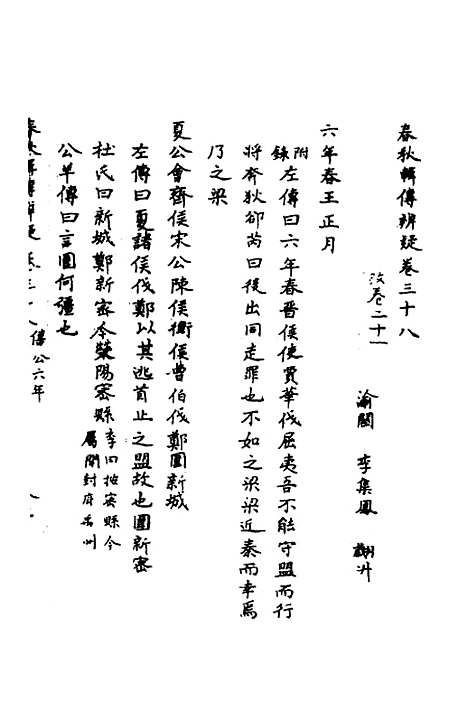 春秋輯傳辨疑卷三十八
改卷二十一
渝關 李集鳳 翽升
六年春王正月
附錄左傳曰六年春晉侯使賈華伐屈夷吾不能守盟而行
將奔狄郤芮曰後出同走罪也不如之梁梁近秦而幸焉
乃之梁
夏公會齊侯宋公陳侯衛侯曹伯伐鄭圍新城
左傳曰夏諸侯伐鄭以其逃首止之盟故也圍新密
杜氏曰新城鄭新密今滎陽密縣李曰按密縣今
屬開封府禹州
公羊傳曰言圍何彊也
春秋輯傳辨疑卷三十八 僖公六年